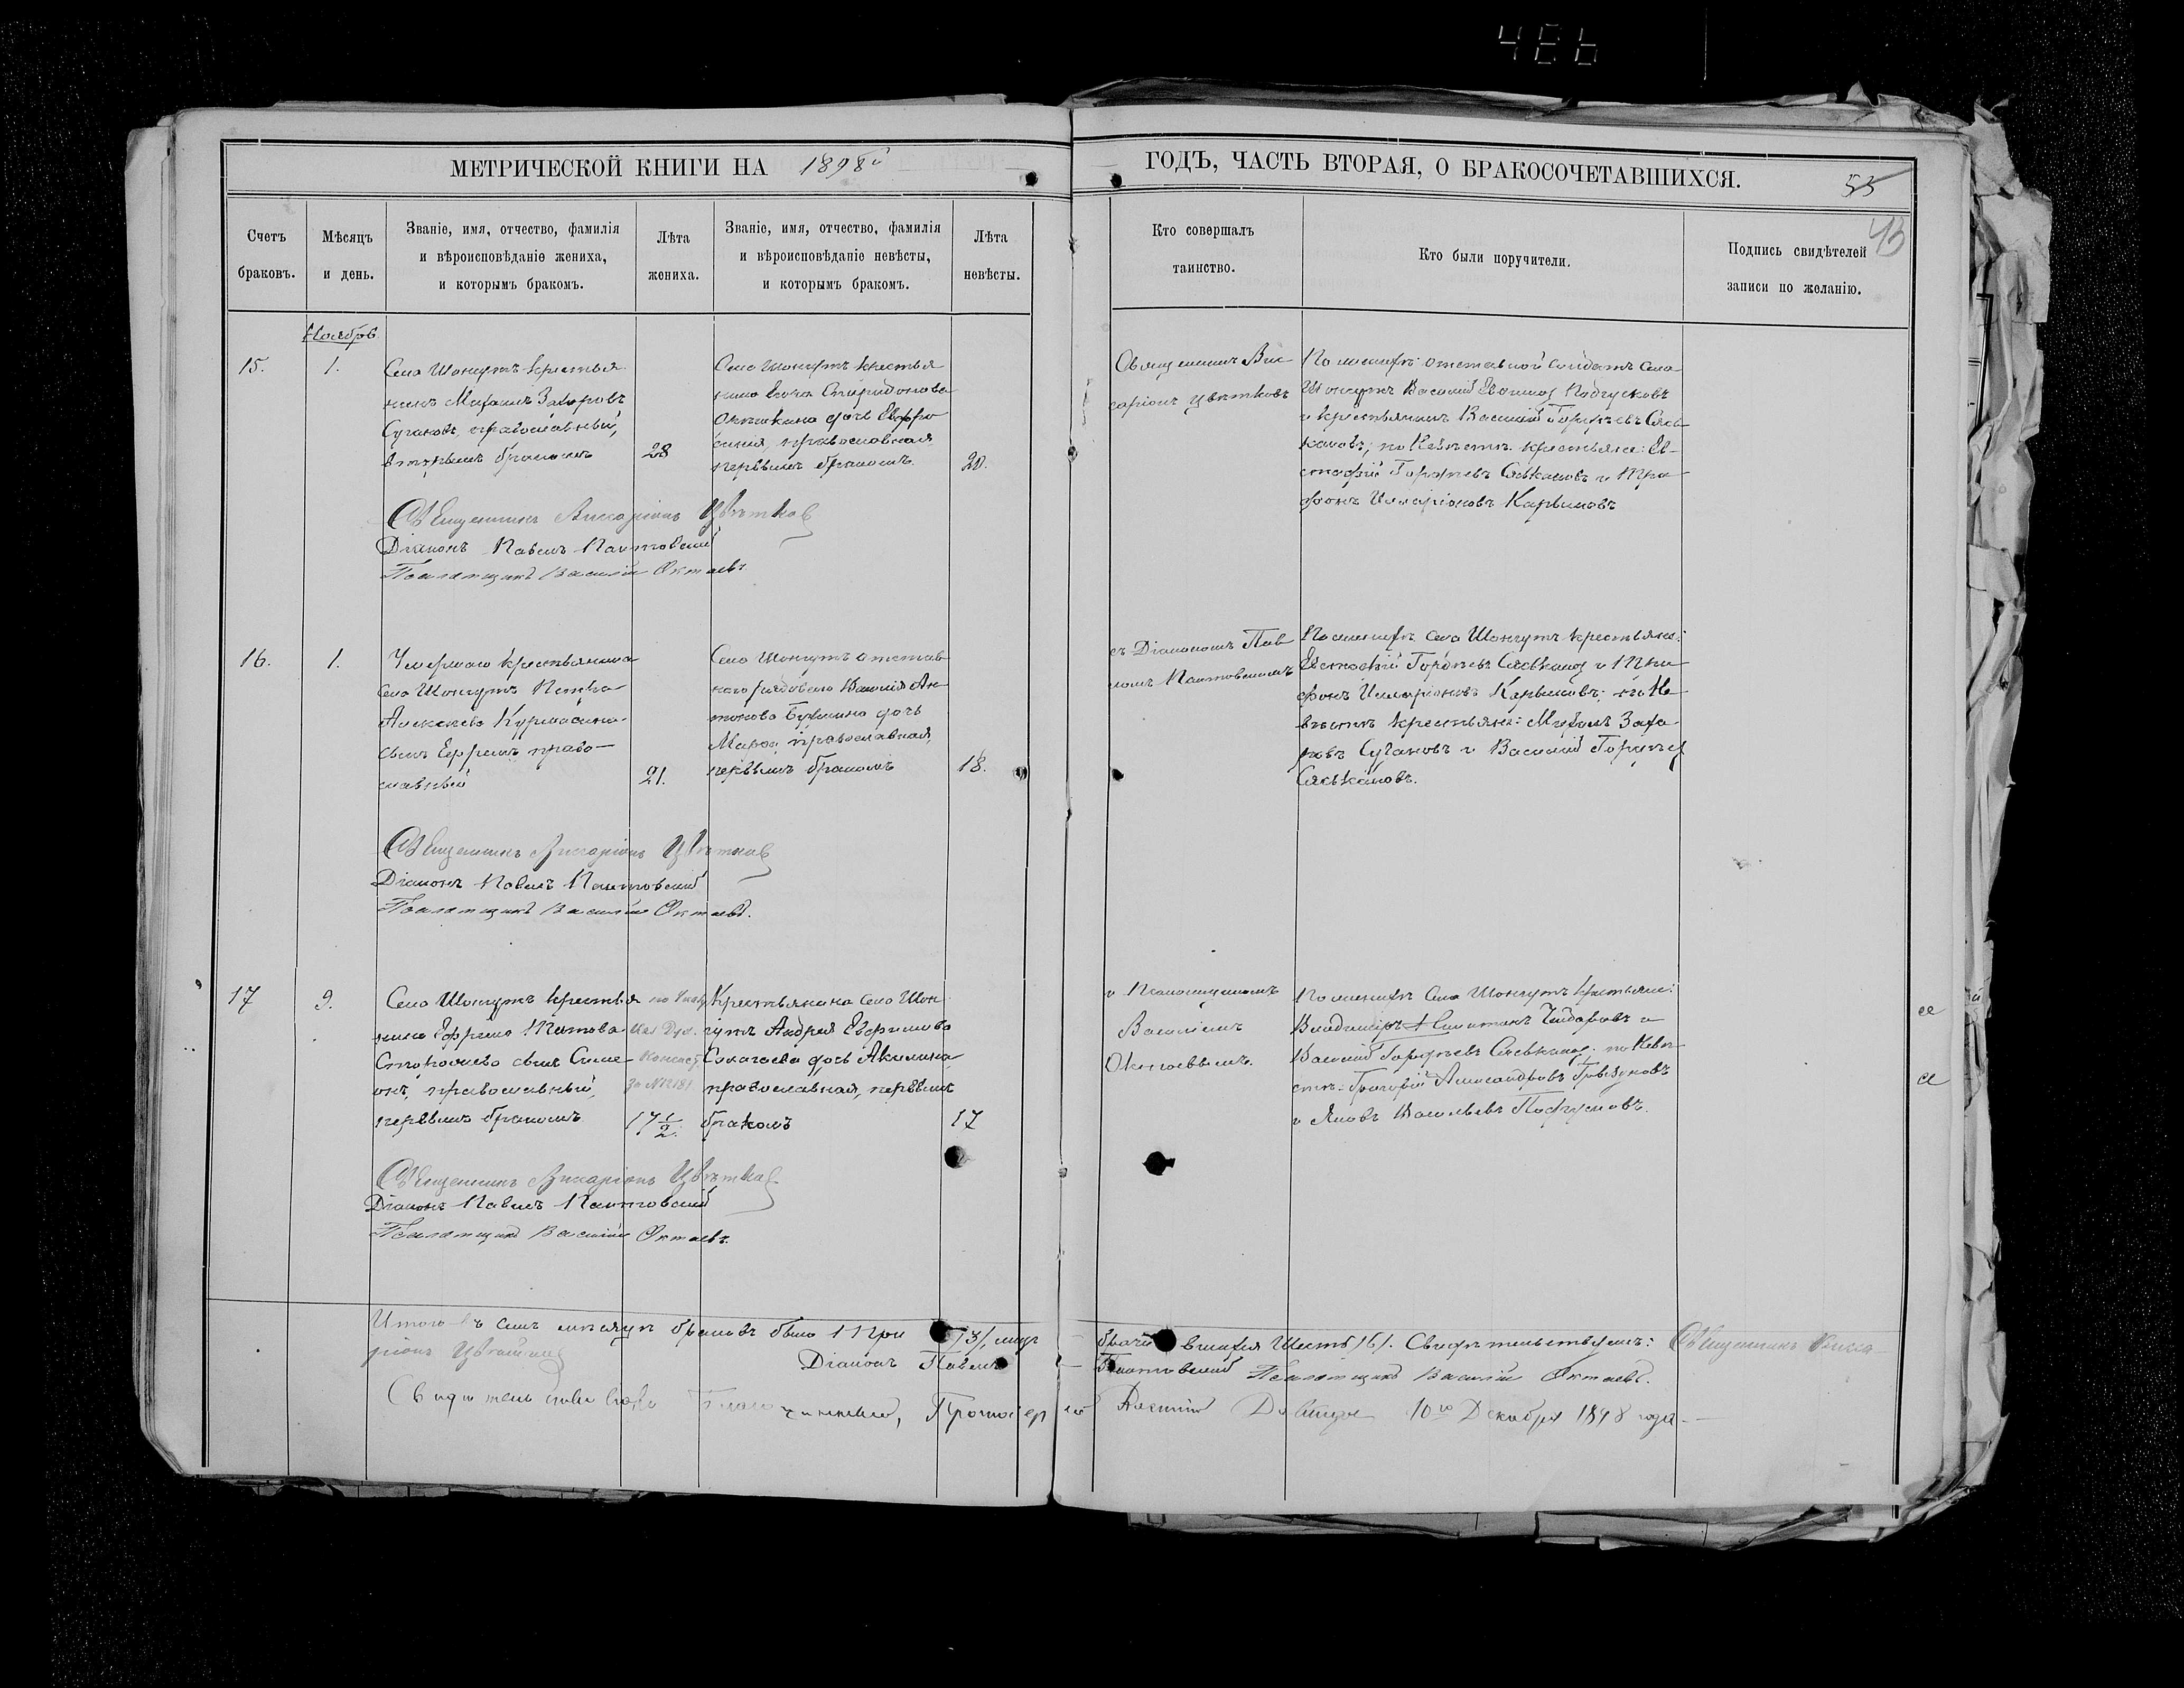 4Е6
МЕТРИЧЕСКОЙ КНИГИ НА 1898й
ГОДЪ, ЧАСТЬ ВТОРАЯ, О БРАКОСОЧЕТАВШИХСЯ.
55
43
Счетъ браковъ.
Мѣсяцъ и день.
Званіе, имя, отчество, фамилія
и вѣроисповѣданіе жениха,
и которымъ бракомъ.
Лѣта
жениха.
Званіе, имя, отчество, фамилія
и вѣроисповѣданіе невѣсты,
и которымъ бракомъ.
Лѣта
невѣсты.
Кто совершалъ
таинство.
Кто были поручители.
Подпись свидѣтелей
записи по желанію.
Ноябрь
15.
1.
Села Шонгутъ крестья
нинъ Михаилъ Захаровъ
Сугановъ, православный,
вторымъ бракомъ
28
Села Шонгутъ крестья
нина Спиридонова
дочь Евфро
синія, православная
первымъ бракомъ.
20.
Священникъ Вис
саріонъ Цвѣтковъ
По женихѣ: отставной солдатъ села
Шонгутъ Василій
и крестьянинъ Василій Гордѣевъ Сясь
кановъ; по невѣстѣ крестьяне: Ев-
стафій Гордѣевъ Сяськановъ и Три
фонъ Илларіоновъ
Священникъ Виссаріонъ Цвѣтков
Діаконъ Павелъ Кантовский
Псаломщикъ Василій Октаевъ.
16.
1.
Умершаго крестьянина
села Шонгутъ Петра
Алексѣева
сынъ Ефремъ, право-
славный
21.
Села Шонгутъ отстав
наго рядоваго Василія Ан-
тонова дочь
Марѳа, православная,
первымъ бракомъ
18.
съ Діакономъ Пав
ломъ Кантовскимъ
По женихѣ села Шонгутъ крестьяне:
Евстафій Гордѣевъ Сяськанов и Три
фонъ Илларіоновъ; по не
вѣстѣ крестьяне: Михаилъ Заха
ровъ Сугановъ и Василій Гордѣев
Сяськановъ.
Священникъ Виссаріонъ Цвѣтков
Діаконъ Павелъ Кантовский
Псаломщикъ Василій Октаевъ.
17
9.
Села Шонгутъ крестья
нина Ефрема Титова
сынъ Симе
онъ, православный,
первымъ бракомъ
по Указу
Каз. Дух.
Консист.
17 1/2.
Крестьянина села Шон
гутъ Андрея Ефимова
дочь Акилина,
православная, первымъ
бракомъ
17
и Псаломщикомъ
Василіемъ
Октаевымъ.
По женихѣ села Шонгутъ крестьяне:
Владиміръ
Василій Гордѣевъ Сяськанов. по невѣ
стѣ: Григорій Александровъ
и Яковъ Васильевъ
Священникъ Виссаріонъ Цвѣтков
Діаконъ Павелъ Кантовский
Псаломщикъ Василій Октаевъ.
Итого въ семъ мѣсяцѣ браковъ было три /3/, лицъ бракосо вшихся шесть /6/. Свидѣтельствуемъ: Священникъ Висса
ріонъ Цвѣтков Діаконъ Павелъ Кантовский Псаломщикъ Василій Октаевъ.
Свидѣтельствовалъ Благочинный, Протоіерей 10го Декабря 1898 года